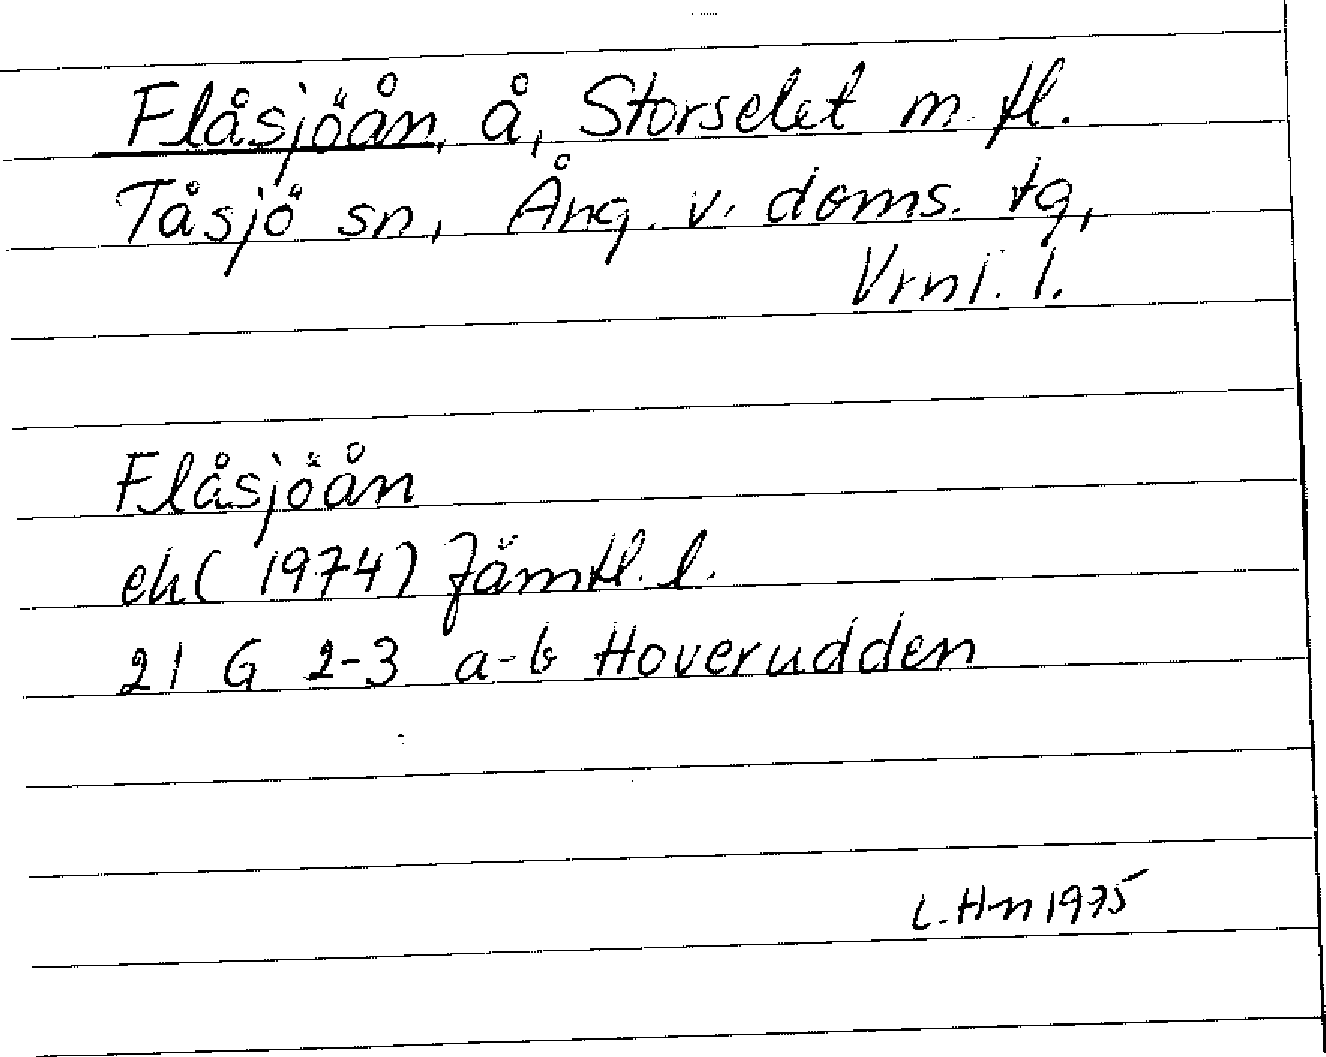 Flåsjöån, å, Storselet m. fl.
Tåsjö sn, Ång. v. doms. tg,
Vrnl. l.
Flåsjöån
ek (1974) Jämtl. l.
21 G 2-3 a-b Hoverudden
L. Hn 1975